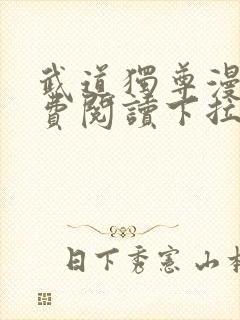 武道獨尊漫
費閱讀下拉
日下秀憲 山本